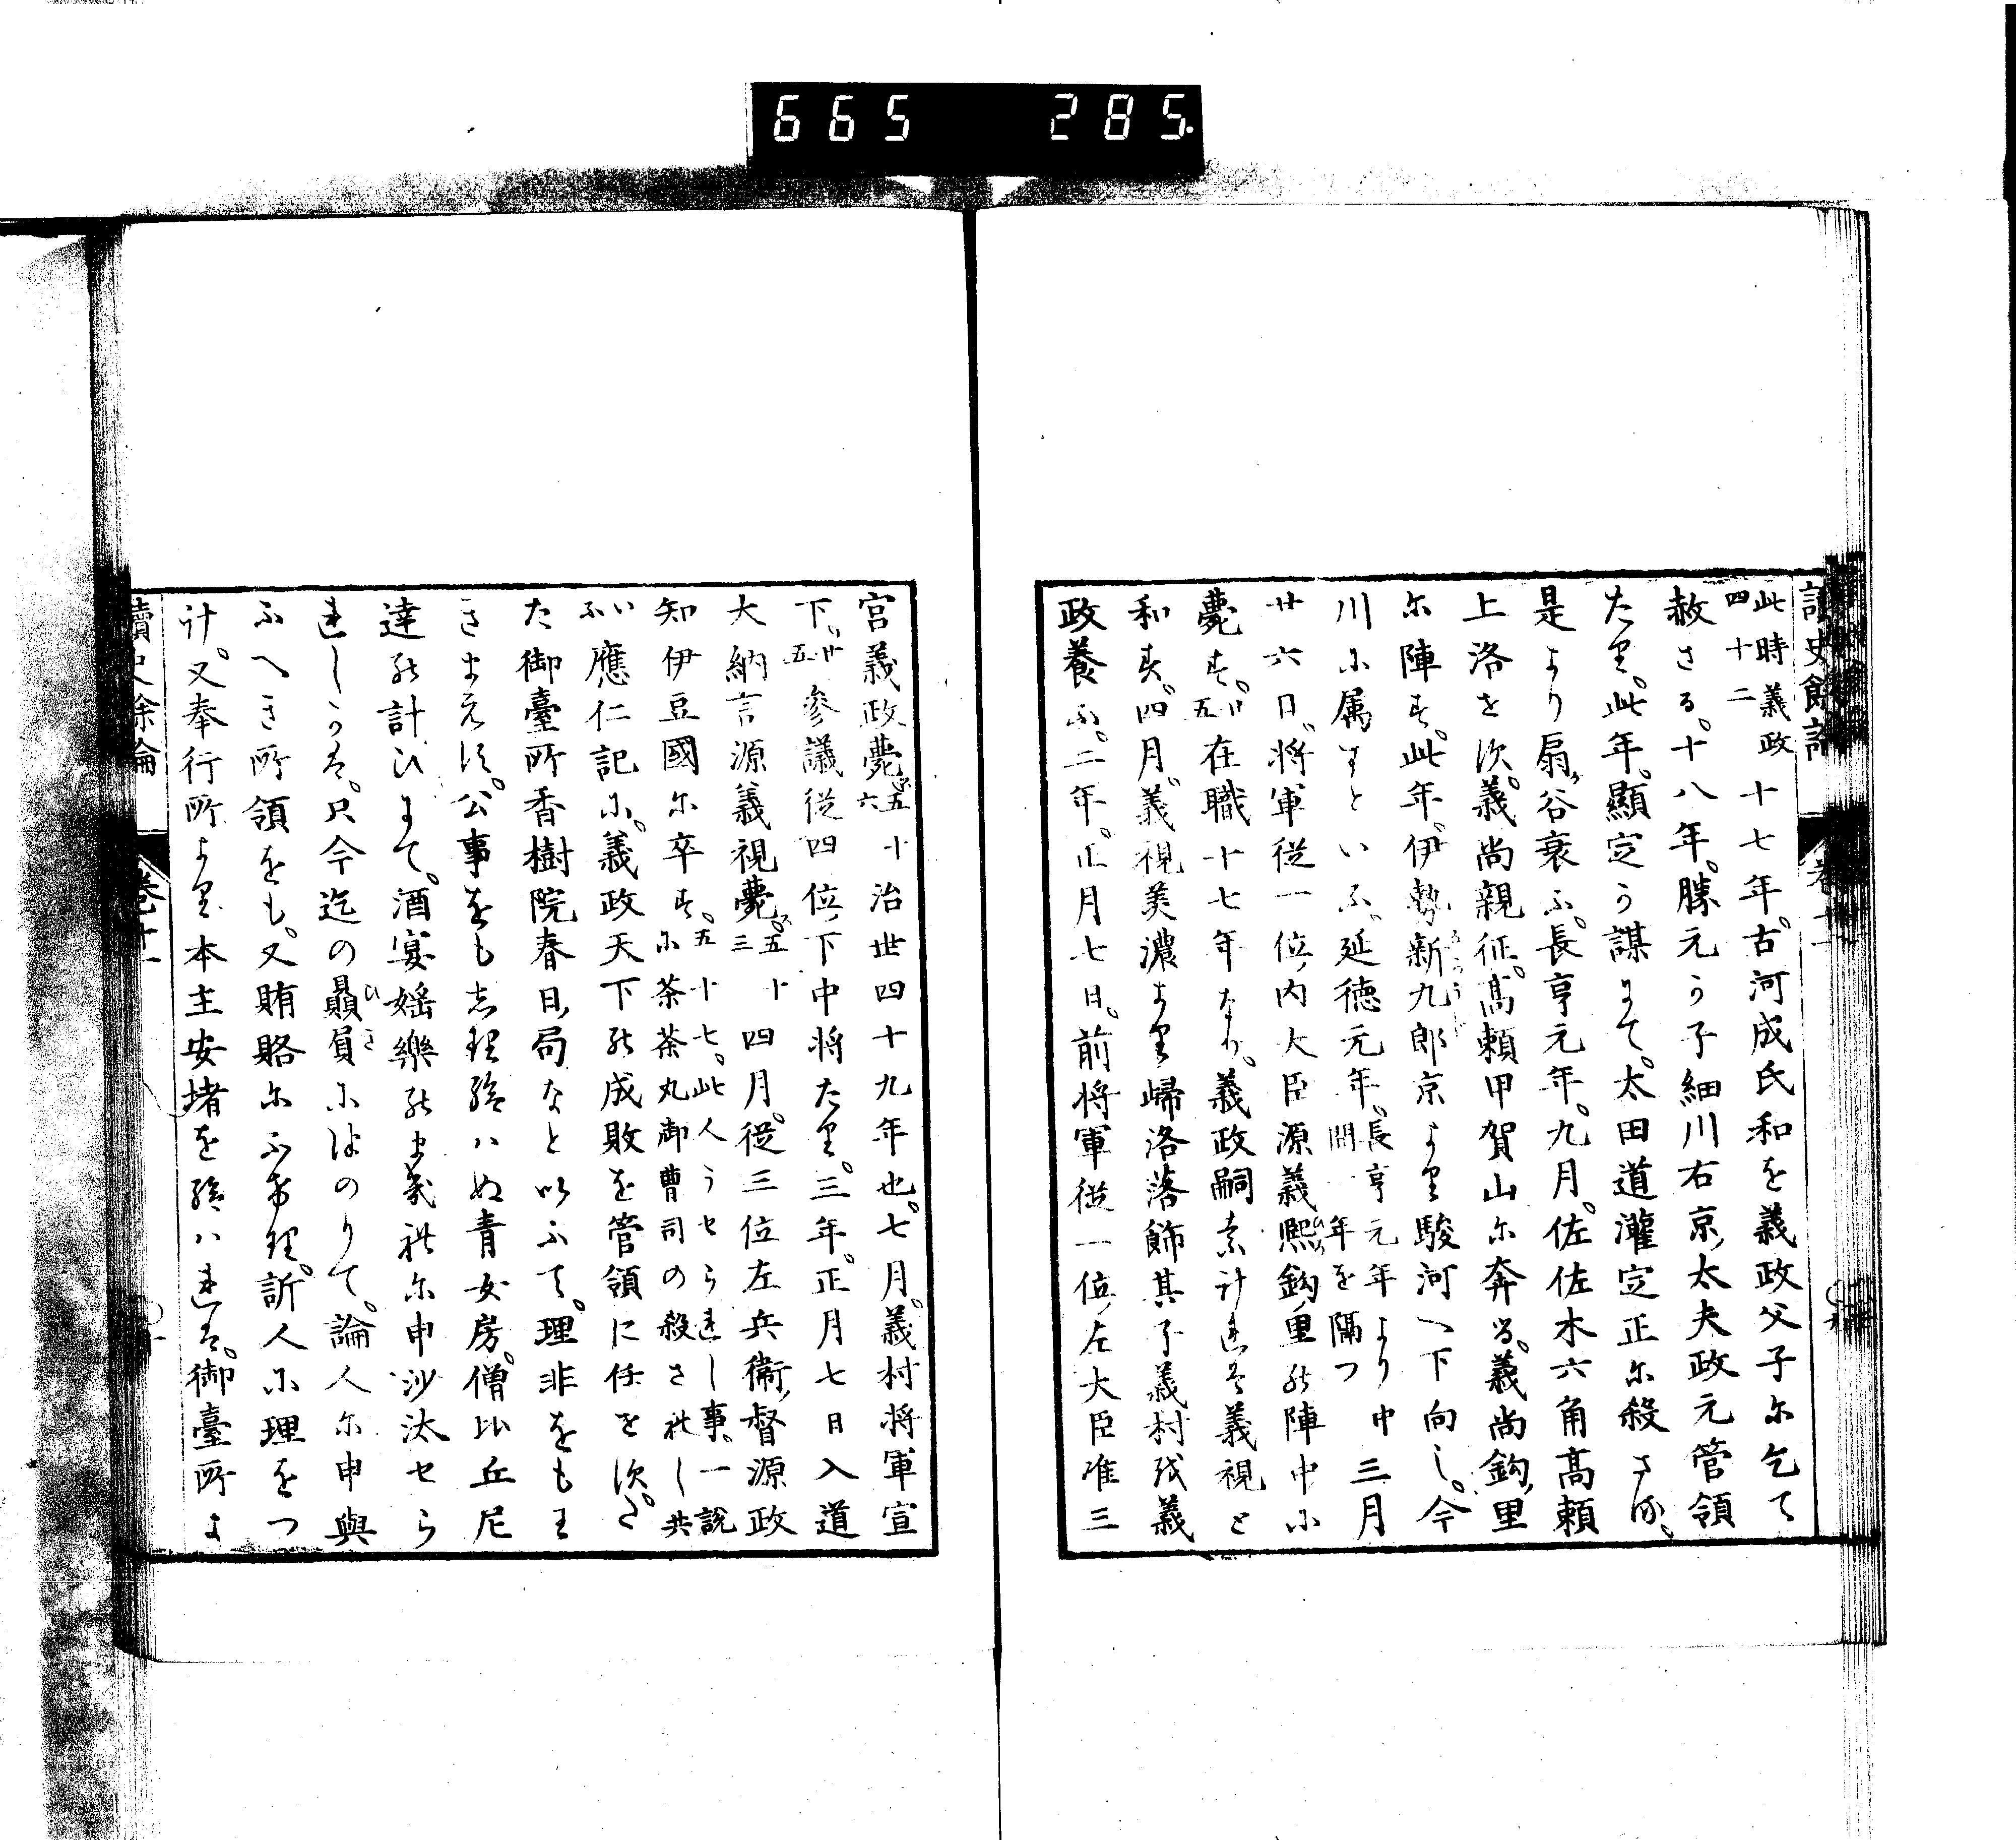 665 285.
讀史餘論 巻十一
此時義政
四十二 十七年。古河成氏和を義政父子尓乞て
赦さる。十八年。勝元う子細川右京太夫政元管領
たり。此年。顯定う謀にて。太田道灌定正尓殺さる。
是より扇谷衰ふ。長亨元年。九月。佐佐木六角髙頼
上洛せす。義尚親征。髙頼甲賀山尓奔る。義尚鈎里
尓陣す。此年。伊勢新九郎京より駿河へ下向し。今
川ふ属すといふ。延徳元年。長亨元年より中
間一年を隔つ 三月
廿六日。将軍従一位内大臣源義熙鈎里の陣中ふ
薨す。廿
五 在職十七年なり。義政嗣素计れは義視と
和す。四月。義視美濃より歸洛落飾其子義村を義
政養ふ。二年。正月七日。前将軍従一位左大臣准三
宮義政薨。五十
六 治世四十九年也。七月。義村将軍宣
下。廿
五 参議従四位下中将たり。三年。正月七日入道
大納言源義視薨。五十
三 四月。従三位左兵衞督源政
知伊豆國尓卒す。五十七。此人うせられし事。一説
ふ茶茶丸御曹司の殺され〳〵共
いふ 應仁記ふ。義政天下の成敗を管領に任せす。た
た御臺所香樹院春日局なと以ふて。理非をもわ
きまえす。公事をもしり給ハぬ青女房。僧比丘尼
達の計ひにて。酒宴婬樂のま義れ尓申沙汰せら
れしうは。只今迄の贔屓ふほのりて。論人尓申與
ふへき所領をも。又賄賂尓ふけり。訴人ふ理をつ
计。又奉行所より本主安堵を給ハれは。御臺所よ
讀史餘論 巻十一